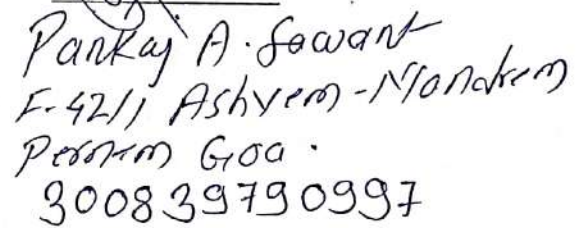 Pankaj A. Sawant
F-42/1 Ashvem-Mandrem
Pernem Goa.
300839790997